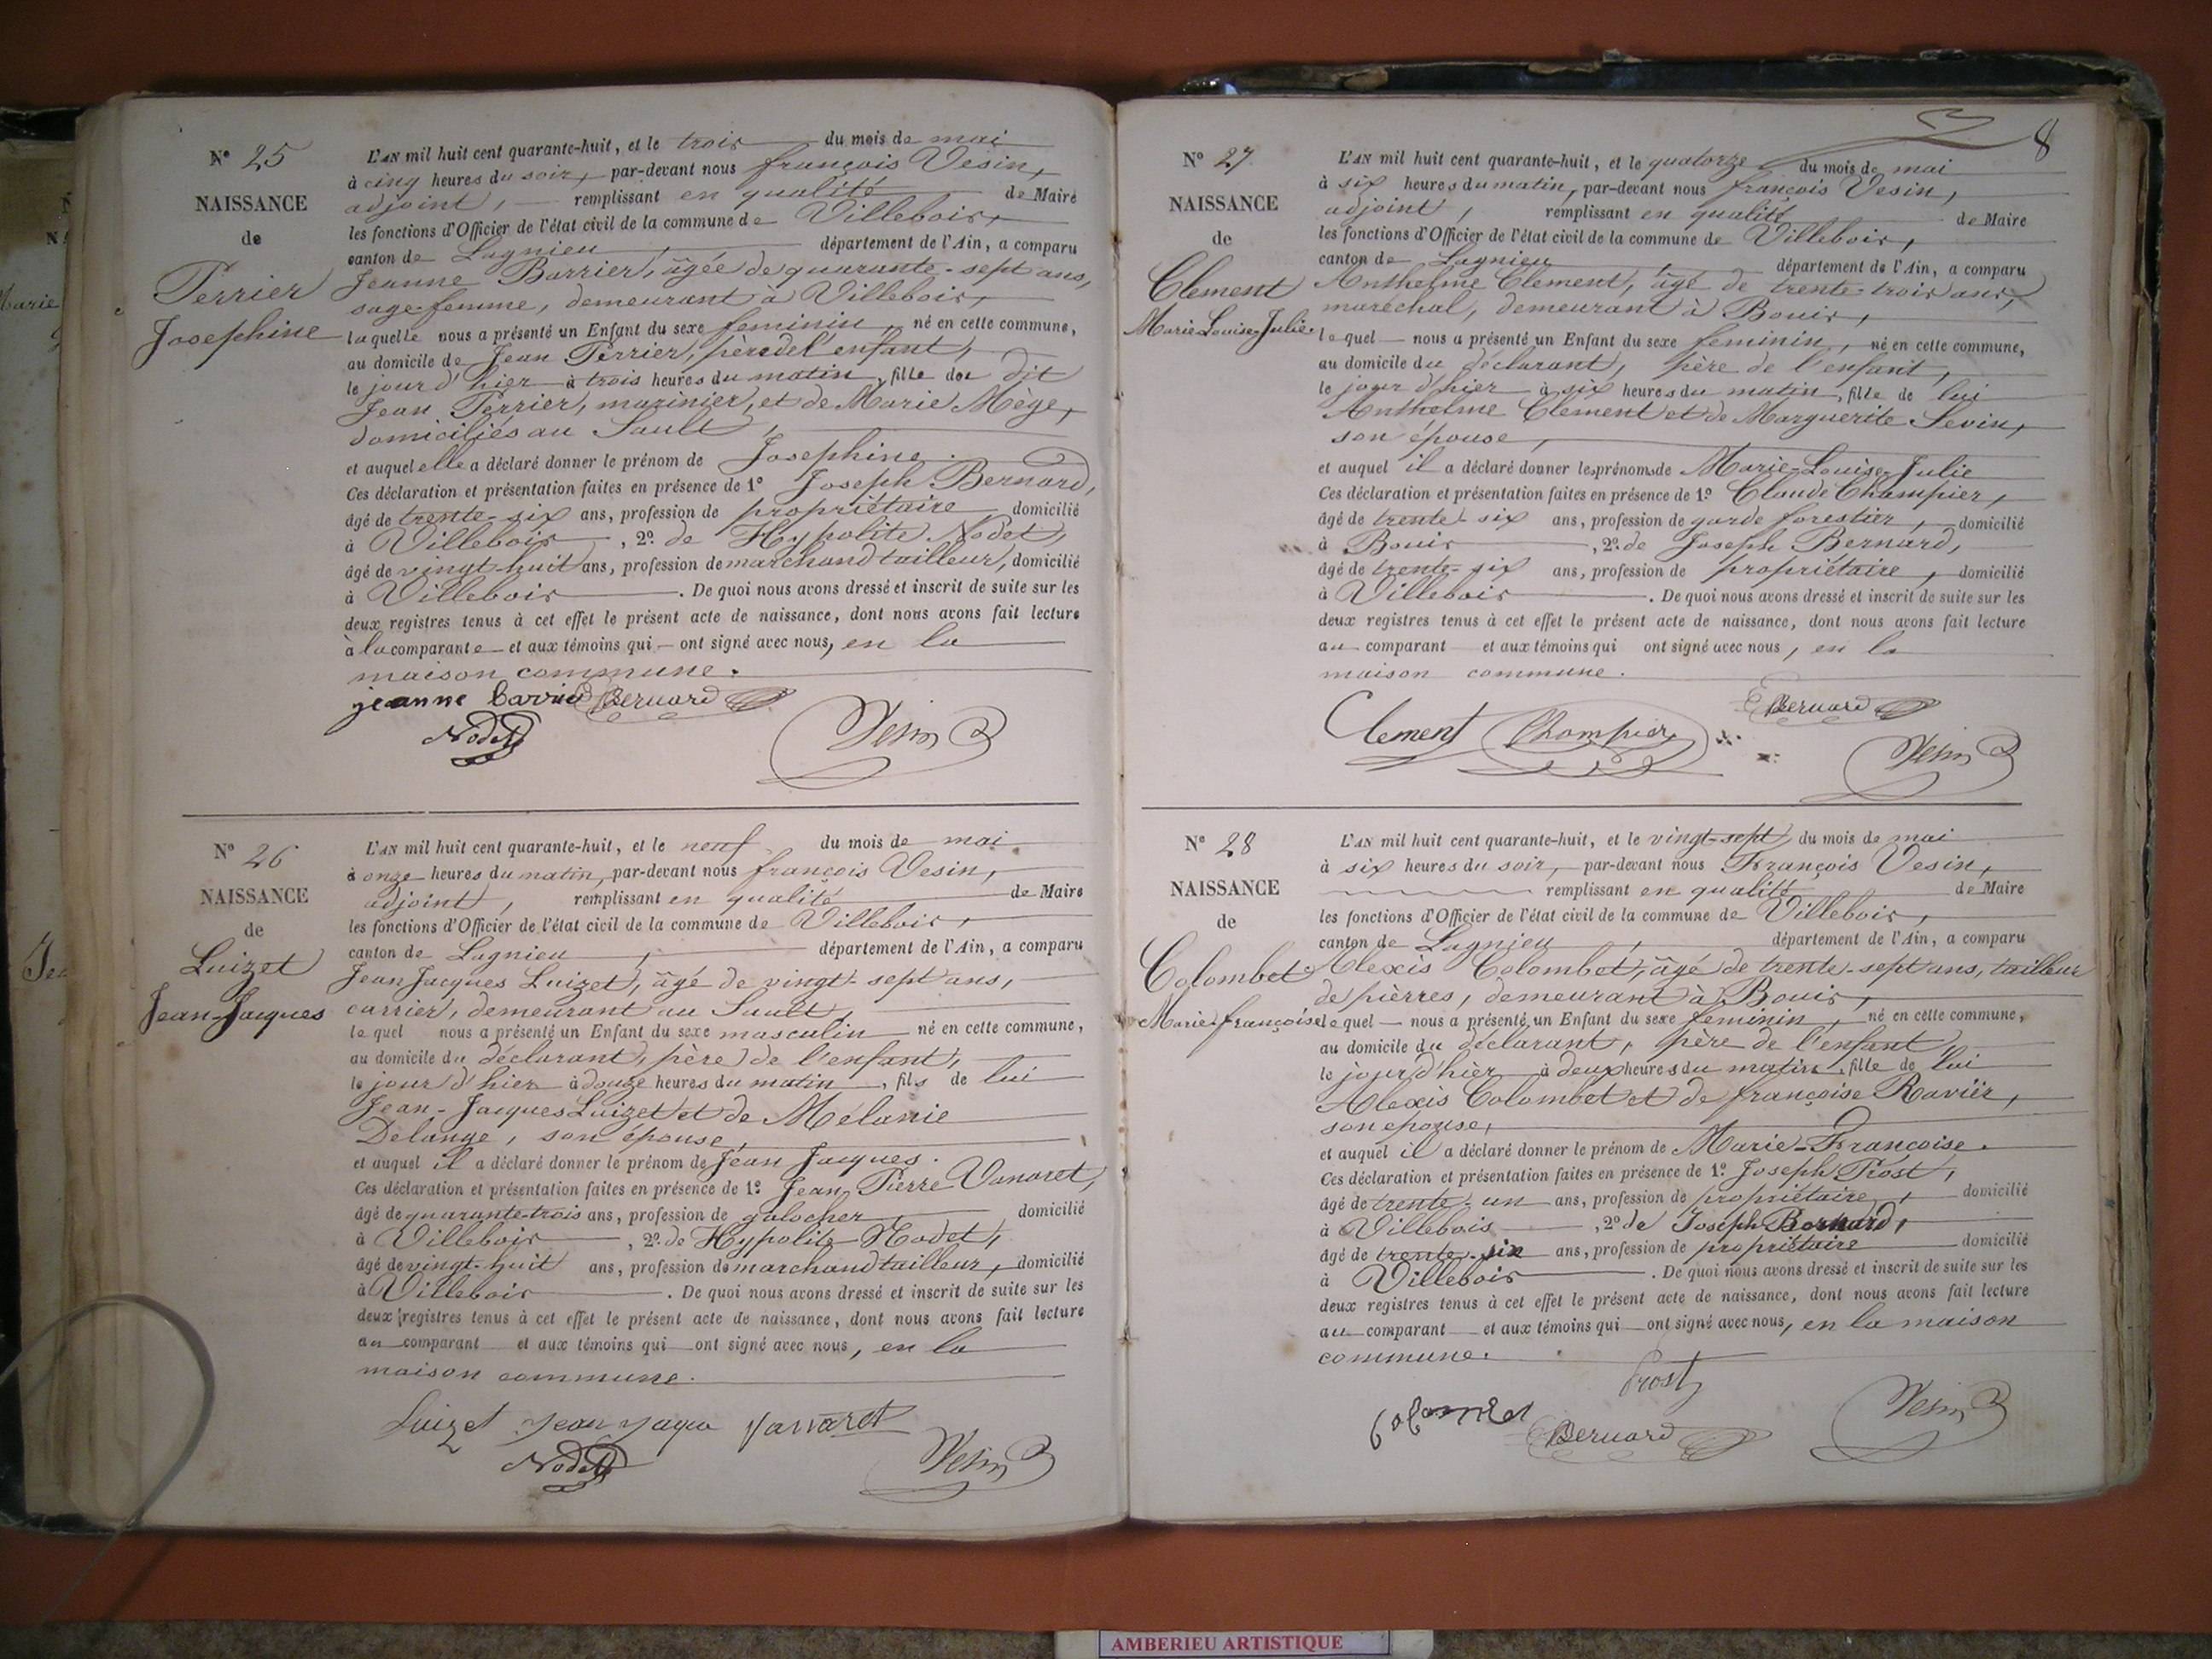 N° 25
NAISSANCE
de
Perrier
Josephine
L'AN mil huit cent quarante-huit, et le trois du mois de mai
à cinq heures du soir, par-devant nous françois Vesin,
adjoint, remplissant en qualité de Maire
les fonctions d'Officier de l'état civil de la commune de Villebois,
canton de Lagnieu, département de l'Ain, a comparu
Jeanne Barrier, âgée de quarante-sept ans,
sage-femme, demeurant à Villebois,
laquelle nous a présenté un Enfant du sexe feminin, né en cette commune,
au domicile de Jean Perrier, père de l'enfant,
le jour d'hier à trois heures du matin, fille du dit
Jean Perrier, marinier, et de Marie Mège,
domiciliés au Sault,
et auquel elle a déclaré donner le prénom de Josephine.
Ces déclaration et présentation faites en présence de 1° Joseph Bernard,
âgé de trente-six ans, profession de propriétaire domicilié
à Villebois, 2° de Hypolite Nodet,
âgé de vingt-huit ans, profession de marchand tailleur, domicilié
à Villebois. De quoi nous avons dressé et inscrit de suite sur les
deux registres tenus à cet effet le présent acte de naissance, dont nous avons fait lecture
à la comparante et aux témoins qui ont signé avec nous, en la
maison commune.
jeanne barrier Bernard
Nodet Vesin
N° 26
NAISSANCE
de
Luizet
Jean-Jacques
L'AN mil huit cent quarante-huit, et le neuf du mois de mai
à onze heures du matin, par-devant nous françois Vesin,
adjoint, remplissant en qualité de Maire
les fonctions d'Officier de l'état civil de la commune de Villebois,
canton de Lagnieu, département de l'Ain, a comparu
Jean Jacques Luizet, âgé de vingt-sept ans,
carrier, demeurant au Sault,
lequel nous a présenté un Enfant du sexe masculin né en cette commune,
au domicile du déclarant, père de l'enfant,
le jour d'hier à douze heures du matin, fils de lui
Jean-Jacques Luizet et de Mélanie
Delange, son épouse,
et auquel il a déclaré donner le prénom de Jean Jacques.
Ces déclaration et présentation faites en présence de 1° Jean Pierre Vanaret,
âgé de quarante-trois ans, profession de galocher, domicilié
à Villebois, 2° de Hypolite Nodet,
âgé de vingt-huit ans, profession de marchand tailleur, domicilié
à Villebois. De quoi nous avons dressé et inscrit de suite sur les
deux registres tenus à cet effet le présent acte de naissance, dont nous avons fait lecture
au comparant et aux témoins qui ont signé avec nous, en la
maison commune.
Luizet Jean Vanaret
Nodet Vesin
8
N° 27
NAISSANCE
de
Clement
Marie Louise Julie
L'AN mil huit cent quarante-huit, et le quatorze du mois de mai
à six heures du matin, par-devant nous françois Vesin,
adjoint, remplissant en qualité de Maire
les fonctions d'Officier de l'état civil de la commune de Villebois,
canton de Lagnieu, département de l'Ain, a comparu
Anthelme Clement, âgé de trente-trois ans,
maréchal, demeurant à Bouis,
lequel nous a présenté un Enfant du sexe feminin, né en cette commune,
au domicile du déclarant, père de l'enfant,
le jour d'hier à six heures du matin, fille de lui
Anthelme Clement et de Marguerite Sevin,
son épouse,
et auquel il a déclaré donner les prénoms de Marie-Louise-Julie
Ces déclaration et présentation faites en présence de 1° Claude Champier,
âgé de trente-six ans, profession de garde forestier, domicilié
à Bouis, 2° de Joseph Bernard,
âgé de trente-six ans, profession de propriétaire, domicilié
à Villebois. De quoi nous avons dressé et inscrit de suite sur les
deux registres tenus à cet effet le présent acte de naissance, dont nous avons fait lecture
au comparant et aux témoins qui ont signé avec nous, en la
maison commune.
Clement Champier Bernard
Vesin
N° 28
NAISSANCE
de
Colombet
Marie françoise
L'AN mil huit cent quarante-huit, et le vingt-sept du mois de mai
à six heures du soir, par-devant nous François Vesin,
remplissant en qualité de Maire
les fonctions d'Officier de l'état civil de la commune de Villebois,
canton de Lagnieu, département de l'Ain, a comparu
Alexis Colombet, âgé de trente-sept ans, tailleur
de pièrres, demeurant à Bouis,
lequel nous a présenté un Enfant du sexe feminin, né en cette commune,
au domicile du déclarant, père de l'enfant,
le jour d'hier à deux heures du matin, fille de lui
Alexis Colombet et de françoise Ravier,
son epouse,
et auquel il a déclaré donner le prénom de Marie-Françoise.
Ces déclaration et présentation faites en présence de 1° Joseph Prost,
âgé de trente-un ans, profession de propriétaire, domicilié
à Villebois, 2° de Joseph Bernard,
âgé de trente-six ans, profession de propriétaire domicilié
à Villebois. De quoi nous avons dressé et inscrit de suite sur les
deux registres tenus à cet effet le présent acte de naissance, dont nous avons fait lecture
au comparant et aux témoins qui ont signé avec nous, en la maison
commune.
Prost
Colombet Bernard Vesin
AMBERIEU ARTISTIQUE